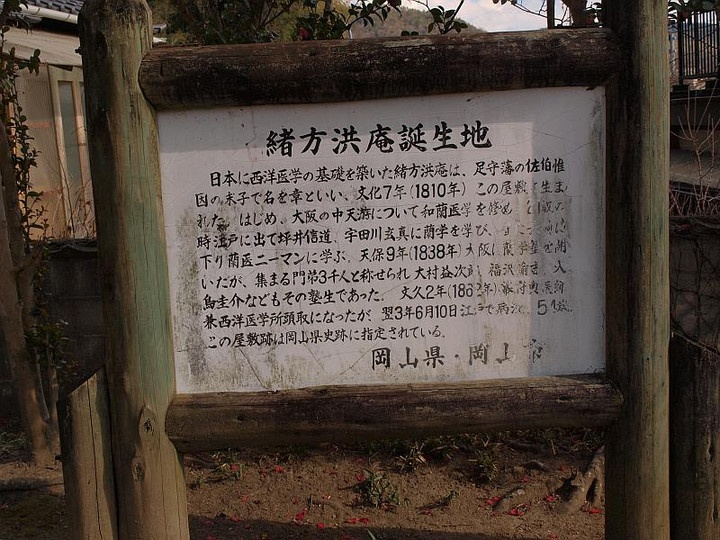 緒方洪庵誕生地
日本に西洋医学の基礎を築いた緒方洪庵は、足守藩の佐伯惟
因の末子で名を章といい、文化7年(1810年)この屋敷 生ま
れた。はじめ、大阪の中天游について和蘭医学を修め
時江戸に出て坪井信道、宇田川玄真に蘭学を学び、
下り蘭医ニーマンに学ぶ。天保9年(1838年)大阪に蘭学塾を開
いたが、集まる門弟3千人と称せられ大村益次 福沢諭吉
鳥圭介などもその塾生であった。文久2年(1862年)
兼西洋医学所頭取になったが、翌3年6月10日江戸で病 54
この屋敷跡は岡山県史跡に指定されている。
岡山県・岡山市